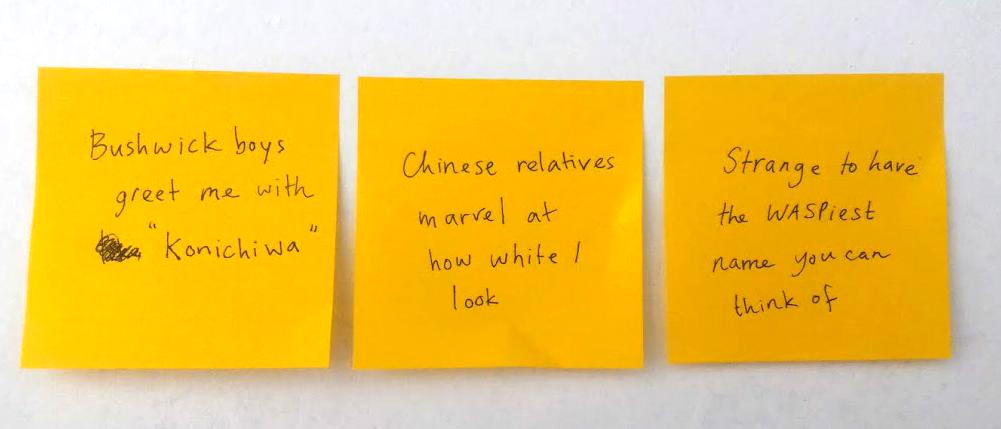 Bushwick boys
greet me with
"Konichiwa"
Chinese relatives
marvel at
how white I
look
Strange to have
the WASPiest
name you can
think of